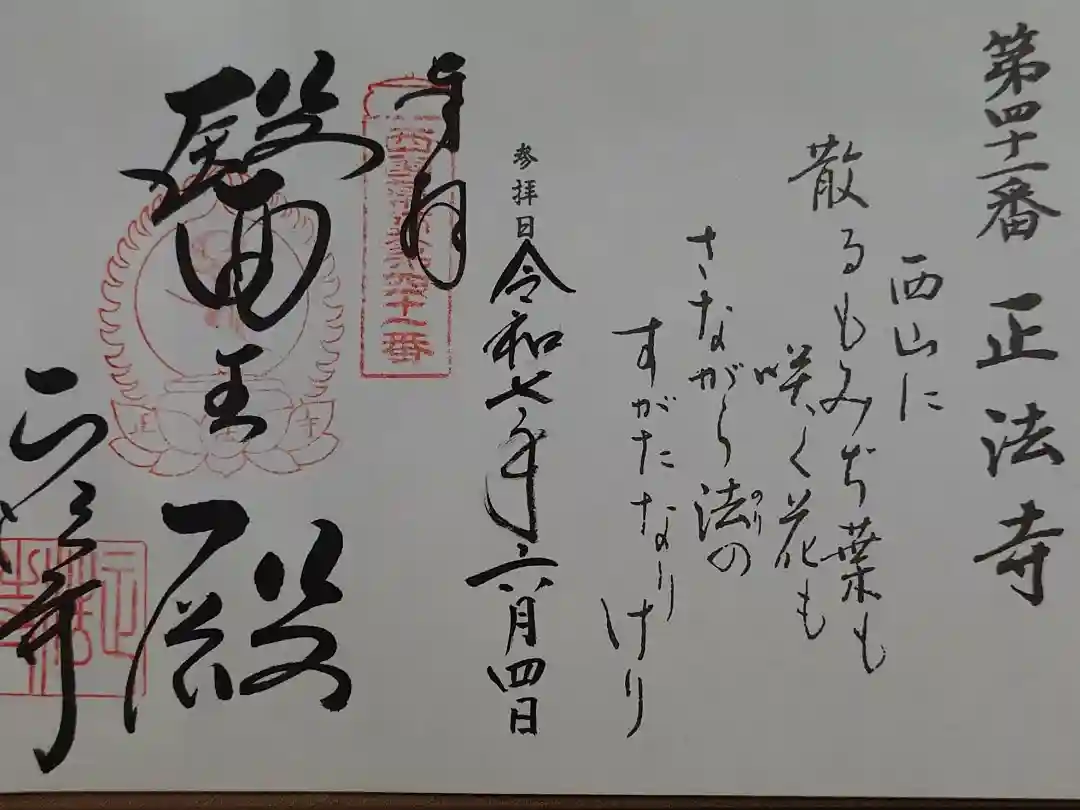 第四十一番 正法寺
西山に
散るもみぢ葉も
咲く花も
さながら法の
のり
すがたなりけり
参拝日 令和七年六月四日
奉拝
西国薬師霊場第四十一番
醫王殿
正法寺
正法寺